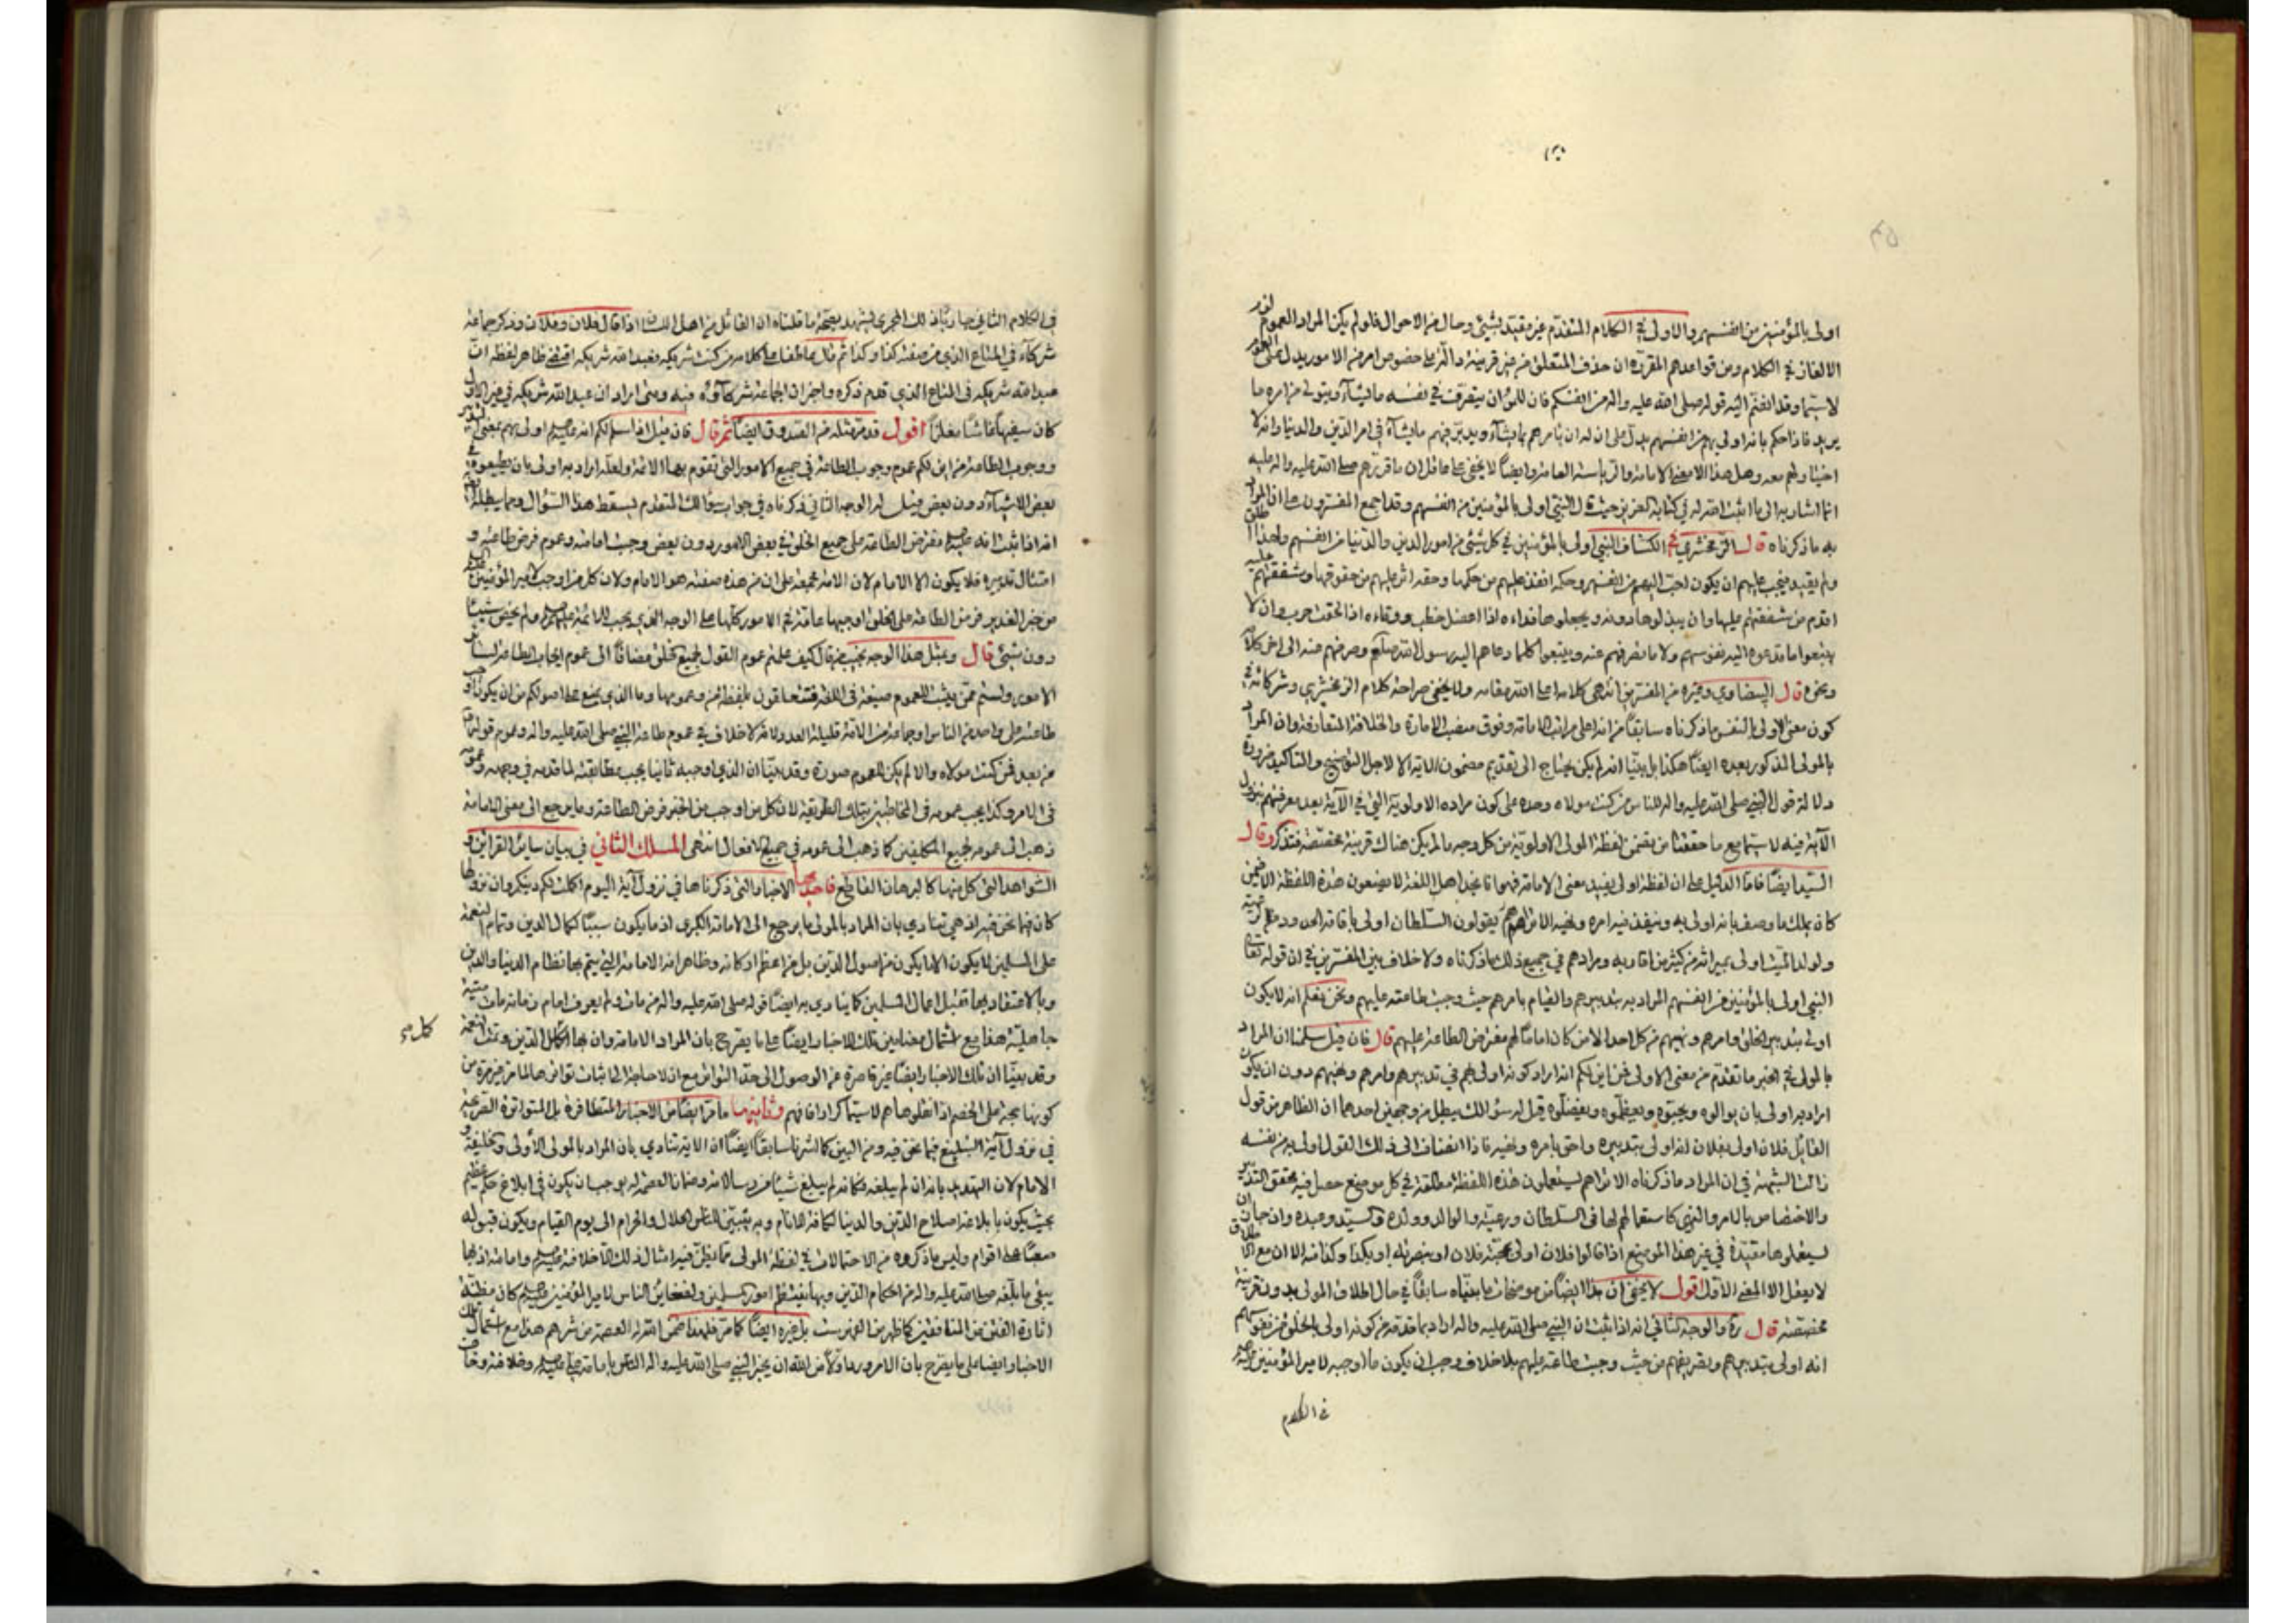 اولى بالمؤمنين من انفسهم والاولى في الكلام المتقدم غير مقيد بشيئ وحال من الاحوال فلو لم يكن المراد العموم لزم
الالغاز في الكلام ومن قواعدهم المقررة ان حذف المتعلق من غير قرينة دالة على خصوص امر من الامور يدل على العموم
لاسيما وقد انضم اليه قوله صلى الله عليه واله من انفسكم فان للمرء ان يتصرف في نفسه ما يشاء ويتولى من امره ما
يريد فاذا حكم بانه اولى بهم من انفسهم يدل على ان له ان يامرهم بما يشاء ويدبر فيهم ما يشاء في امر الدين والدنيا وانه لا
اختيار لهم معه وهل هذا الا معنى الامامة والرياسة العامة وايضا لا يخفى على عاقل ان ما قررهم صلى الله عليه واله عليه
انما اشار به الى ما اثبت الله له في كتابه العزيز حيث قال النبي اولى بالمؤمنين من انفسهم وقد اجمع المفسرون على ان المراد
به ما ذكرناه قال الزمخشري في الكشاف النبي اولى بالمؤمنين في كل شيئ من امور الدين والدنيا من انفسهم ولهذا اطلق
ولم يقيد فيجب عليهم ان يكون احب اليهم من انفسهم وحكمه انفذ عليهم من حكمها وحقه اثر عليهم من حقوقها وشفقتهم عليه
اقدم من شفقتهم عليها وان يبذلوها دونه ويجعلوها فداءه اذا اعضل خطب ووقاءه اذا لقحت حرب وان لا
يتبعوا ما تدعوهم اليه نفوسهم ولا ما تصرفهم عنه ويتبعوا كلما دعاهم اليه رسول الله صلعم وصرفهم عنه الى اخر كلامه
ونحوه قال البيضاوي وغيره من المفسرين انتهى كلامه اعلى الله مقامه ولا يخفى صراحة كلام الزمخشري وشركائه في
كون معنى الاولى بالنفس ما ذكرناه سابقا من انه اعلى مراتب الامامة وفوق منصب الامارة والخلافة المتعارفة وان المراد
بالمولى المذكور بعده ايضا هكذا بل بينا انه لم يكن يحتاج الى تقديم مضمون الاية الا لاجل التوضيح والتاكيد ضرورة
دلالة قول النبي صلى الله عليه واله للناس من كنت مولاه وحده على كون مراده الاولوية التي في الاية بعد معرفتهم نزول
الاية فيه لاسيما مع ما حققنا من تضمن لفظة المولى الاولوية من كل وجه ما لم يكن هناك قرينة مخصصة فتذكر وقال
السيد ايضا فاما الدليل على ان لفظة اولى يفيد معنى الامامة فهو انا نجد اهل اللغة لا يضعون هذه اللفظة الا فيمن
كان يملك ما وصف بانه اولى به وينفذ فيه امره ونهيه الا تراهم يقولون السلطان اولى باقامة الحدود من الرعية
وولد الميت اولى بميراثه من كثير من اقاربه ومرادهم في جميع ذلك ما ذكرناه ولا خلاف بين المفسرين في ان قوله تعالى
النبي اولى بالمؤمنين من انفسهم المراد به بتدبيرهم والقيام بامرهم حيث وجبت طاعته عليهم ونحن نعلم انه لا يكون
اولى بتدبير الخلق وامرهم ونهيهم من كل احد الا من كان اماما لهم مفترض الطاعة عليهم قال فان قيل سلمنا ان المراد
بالمولى في الخبر ما تقدم من معنى الاولى فمن اين لكم انه اراد كونه اولى بهم في تدبيرهم وامرهم ونهيهم دون ان يكون
اراد به اولى بان يوالوه ويحبوه ويعظموه ويفضلوه قيل له سؤالك يبطل من وجهين احدهما ان الظاهر من قول
القائل فلان اولى بفلان انه اولى بتدبيره واحق بامره ونهيه فاذا انضاف الى ذلك القول اولى به من نفسه
زالت الشبهة في ان المراد ما ذكرناه الا تراهم يستعملون هذه اللفظة مطلقة في كل موضع حصل فيه تحقق التدبير
والاختصاص بالامر والنهي كاستعمالهم لها في السلطان ورعيته والوالد وولده والسيد وعبده وان جاز ان
يستعملوها مقيدة في غير هذا الموضع اذا قالوا فلان اولى بمحبة فلان او بنصرته او بكذا وكذا منه الا ان مع الاطلاق
لا يعقل الا المعنى الاول اقول لا يخفى ان هذا ايضا من موضحات ما بيناه سابقا في حال اطلاق المولى بدون قرينة
مخصصة قال ره والوجه الثاني انه اذا ثبت ان النبي صلى الله عليه واله اراد بما قدمه من كونه اولى بالخلق من نفوسهم
انه اولى بتدبيرهم وتصريفهم من حيث وجبت طاعته عليهم بلا خلاف وجب ان يكون ما اوجبه لامير المؤمنين عليه السلم
في الكلام
في الكلام الثاني جاريا ذلك المجرى يشهد بصحة ما قلناه ان القائل من اهل اللسان اذا قال فلان وفلان وذكر جماعة
شركاؤه في المتاع الذي من صفته كذا وكذا ثم قال عاطفا على كلامه من كنت شريكه فعبد الله شريكه اقتضى ظاهر لفظه ان
عبد الله شريكه في المتاع الذي قدم ذكره واخبر ان الجماعة شركاؤه فيه ومتى اراد ان عبد الله شريكه في غير الاول
كان سفيها عابثا ملغزا اقول قد مر مثله من الصدوق ايضا ثم قال فان قيل اذا سلم لكم انه عليه السلم اولى بهم بمعنى التدبير
ووجوب الطاعة من اين لكم عموم وجوب الطاعة في جميع الامور التي تقوم بها الائمة ولعله اراد به اولى بان يطيعوه في
بعض الاشياء دون بعض قيل له الوجه الثاني ذكرناه في جواب سؤالك المتقدم يسقط هذا السؤال ومما يبطله
انه اذا ثبت انه عليه السلم مفترض الطاعة على جميع الخلق في بعض الامور دون بعض وجبت امامته وعموم فرض طاعته و
امتثال تدبيره فلا يكون الا الامام لان الامة مجمعة على ان من هذه صفته هو الامام ولان كل من اوجب لامير المؤمنين عليه السلم
من خبر الغدير فرض الطاعة على الخلق اوجبها عامة في الامور كلها على الوجه الذي يجب للائمة عليهم السلم ولم يخص شيئا
دون شيئ قال وبمثل هذا الوجه نجيب من قال كيف علمتم عموم القول لجميع الخلق مضافا الى عموم ايجاب الطاعة لسائر
الامور ولستم ممن يثبت للعموم صيغة في اللغة فتتعلقون بلفظة من وعمومها وما الذي يمنع على اصولكم من ان يكون اوجب
طاعته على واحد من الناس او جماعة من الامة قليلة العدد لانه لا خلاف في عموم طاعة النبي صلى الله عليه واله وعموم قوله
من بعد فمن كنت مولاه والا لم يكن للعموم صورة وقد بينا ان الذي اوجبه ثانيا يجب مطابقته لما قدمه في وجهه وعمومه
في الامر وكذا يجب عمومه في المخاطبين بتلك الطريقة لان كل من اوجب من الخبر فرض الطاعة وما يرجع الى معنى الامامة
ذهب الى عمومه لجميع المكلفين كما ذهب الى عمومه في جميع الافعال انتهى المسلك الثاني في بيان سائر القرائن و
الشواهد التي كل منها كالبرهان القاطع فاحدها الاخبار التي ذكرناها في نزول آية اليوم اكملت لكم دينكم وان نزولها
كان فيما نحن فيه اذ هي تنادي بان المراد بالمولى ما يرجع الى الامامة الكبرى اذ ما يكون سببا لكمال الدين وتمام النعمة
على المسلمين لا يكون الا ما يكون من اصول الدين بل من اعظم اركانه وظاهر انه الامامة التي يتم بها نظام الدنيا والدين
وبالاعتقاد بها تقبل اعمال المسلمين كما ينادي به ايضا قوله صلى الله عليه واله من مات ولم يعرف امام زمانه مات ميتة
جاهلية هذا مع اشتمال مضامين تلك الاخبار ايضا على ما يصرح بان المراد الامامة وان بها اكمل الدين وتمت النعمة
وقد بينا ان تلك الاخبار ايضا غير قاصرة عن الوصول الى حد التواتر مع ان لا حاجة الى اثبات تواترها لما مر غير مرة من
كونها حجة على الخصم اذا نقلوها هم لاسيما كرارا فافهم وثانيها ما مر ايضا من الاخبار المتظافرة بل المتواترة الصريحة
في نزول آية التبليغ فيما نحن فيه ومن البين كما اشرنا سابقا ايضا ان الاية تنادي بان المراد بالمولى الاولى والخليفة و
الامام لان التهديد بانه ان لم يبلغه فكانه لم يبلغ شيئا من رسالاته وضمان العصمة له يوجب ان يكون في ابلاغ حكم عظيم
بحيث يكون بابلاغه اصلاح الدين والدنيا لكافة الانام وبه يتبين للناس الحلال والحرام الى يوم القيام ويكون قبوله
صعبا على اقوام وليس ما ذكروه من الاحتمالات في لفظة المولى مما يظن فيه امثال ذلك الا خلافته عليه السلم وامامته اذ بها
يبقى ما بلغه صلى الله عليه واله من احكام الدين وبها ينتظم امور المسلمين ولضغاين الناس لامير المؤمنين عليه السلم كان مظنة
اثارة الفتن من المنافقين كما ظهر من الفهرست بل غيره ايضا كما مر فلهذا ضمن الله له العصمة من شرهم هذا مع اشتمال تلك
الاخبار ايضا على ما يصرح بان الامر ورد اولا من الله ان يخبر النبي صلى الله عليه واله الناس بامامة علي عليه السلم وخلافته وخاف